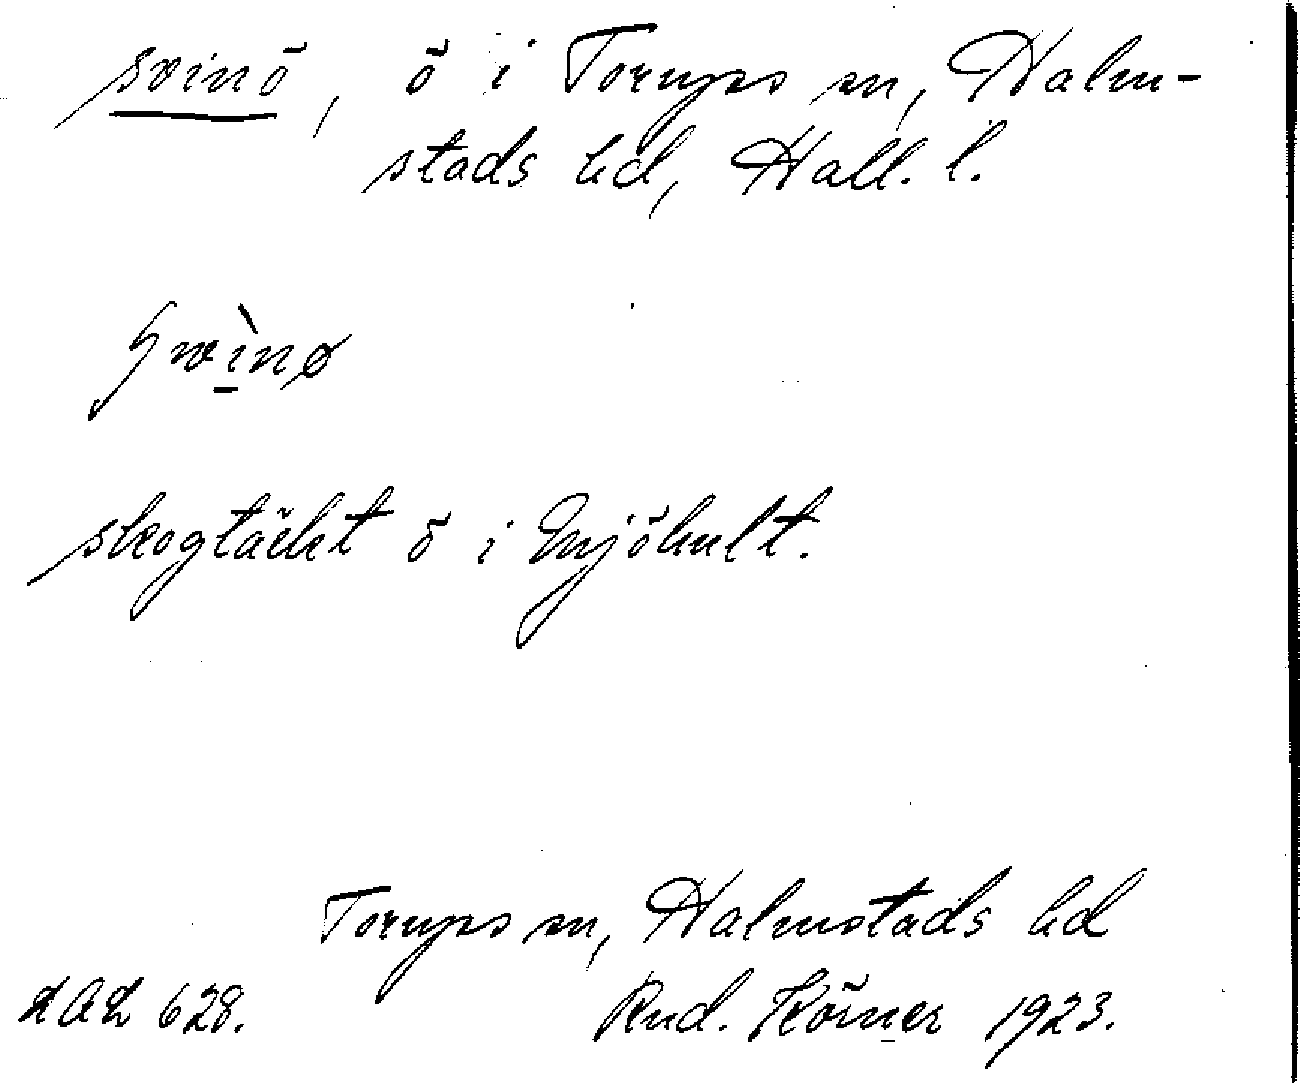 svinö, ö i Torups sn, Halm-
stads hd, Hall. l.
Svìnø
skogtäckt ö i Mjöhult.
Torups sn, Halmstads hd
LAL 628. Rud. Körner 1923.